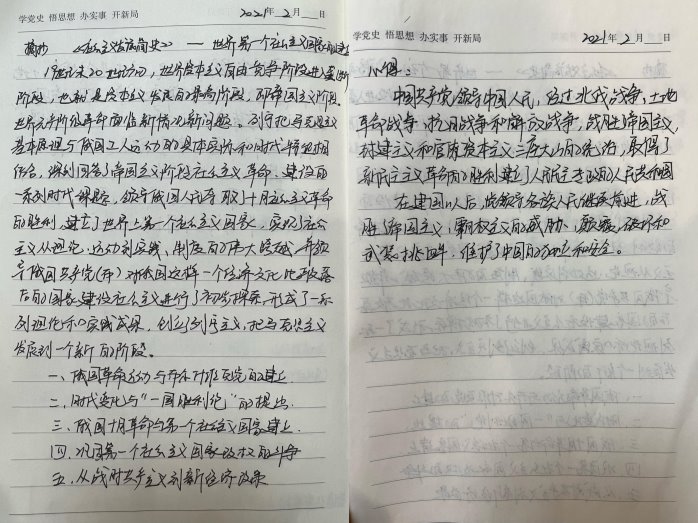 学党史 悟思想 办实事 开新局 2021年2月 日
摘抄 《社会主义发展简史》—— 世界第一个社会主义国家的建立
19世纪末20世纪初，世界资本主义由自由竞争阶段进入垄断
阶段，也就是资本主义发展的最高阶段，即帝国主义阶段。
世界无产阶级革命面临新情况新问题。列宁把马克思主义
基本原理与俄国工人运动的具体实际和时代特征相
结合，深刻回答了帝国主义阶段社会主义革命、建设的
一系列时代课题，领导俄国人民夺取十月社会主义革命
的胜利，建立了世界上第一个社会主义国家，实现了社会
主义从理论、运动到实践、制度的伟大跨越，并领
导俄国共产党（布）对俄国这样一个经济文化比较落
后的国家建设社会主义进行了初步探索，形成了一系
列理论和实践成果，创立了列宁主义，把马克思主义
发展到一个新的阶段。
一、俄国革命运动与布尔什维克党的建立
二、时代变化与“一国胜利论”的提出
三、俄国十月革命与第一个社会主义国家建立
四、巩固第一个社会主义国家政权的斗争
五、从战时共产主义到新经济政策
学党史 悟思想 办实事 开新局 2021年2月 日
心得
中国共产党领导中国人民，经过北伐战争、土地
革命战争、抗日战争和解放战争，战胜帝国主义，
封建主义和官僚资本主义三座大山的统治，取得了
新民主主义革命的胜利，建立了人民当家的人民共和国
在建国以后，领导各族人民继续前进，战
胜了帝国主义、霸权主义的威胁、颠覆、破坏和
武装挑衅，维护了中国的独立和安全。